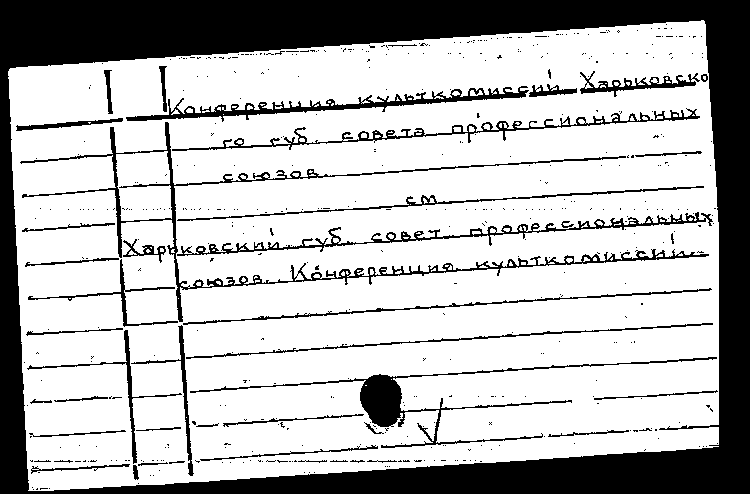 Конференция культкомиссий Харьковско
го губ. совета профессиональных
союзов.
см
Харьковский губ. совет профессиональных
союзов. Конференция культкомиссий.